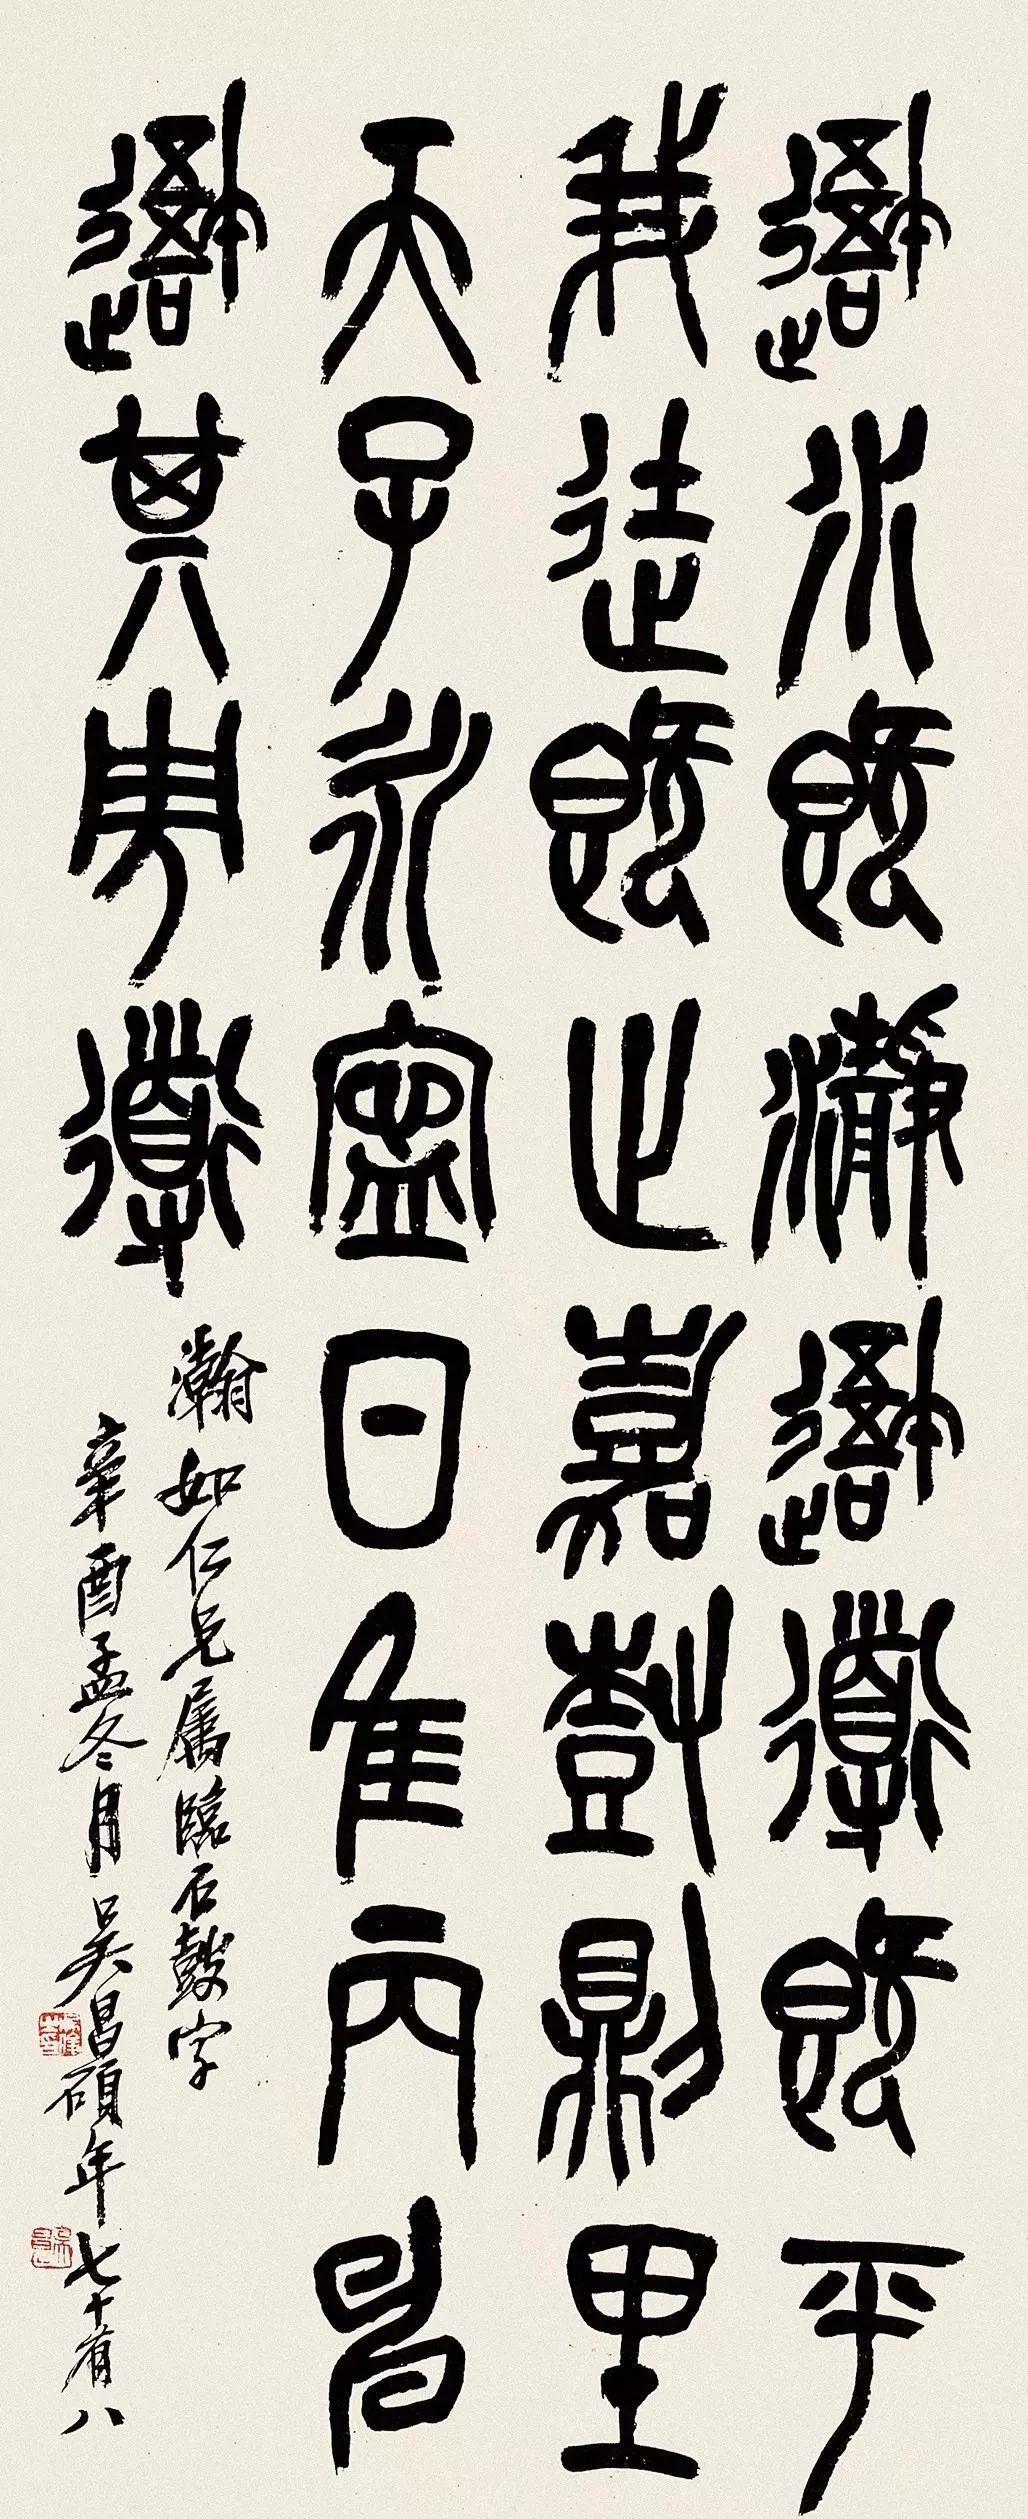 䢦水既瀞䢦導既平
我徒既止嘉尌則里
天子永寍日隹丙申
䢦其用導
瀚如仁兄属臨石鼓字
辛酉孟冬月吴昌碩年七十有八